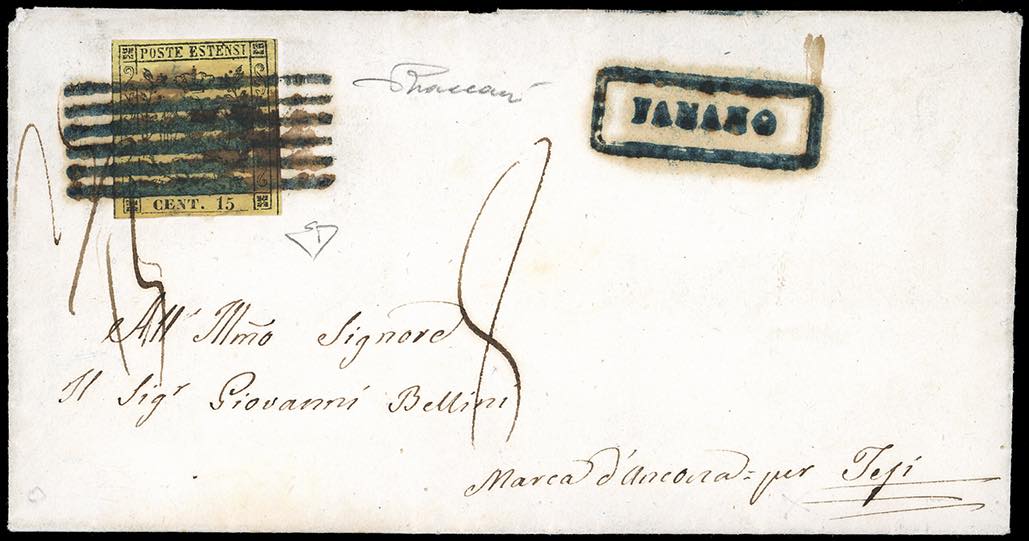 POSTE ESTENSI
CENT. 15
FANANO
All' Illmo Signore
Il Sigr Giovanni Bellini
Marca d'Ancona = per Jesi